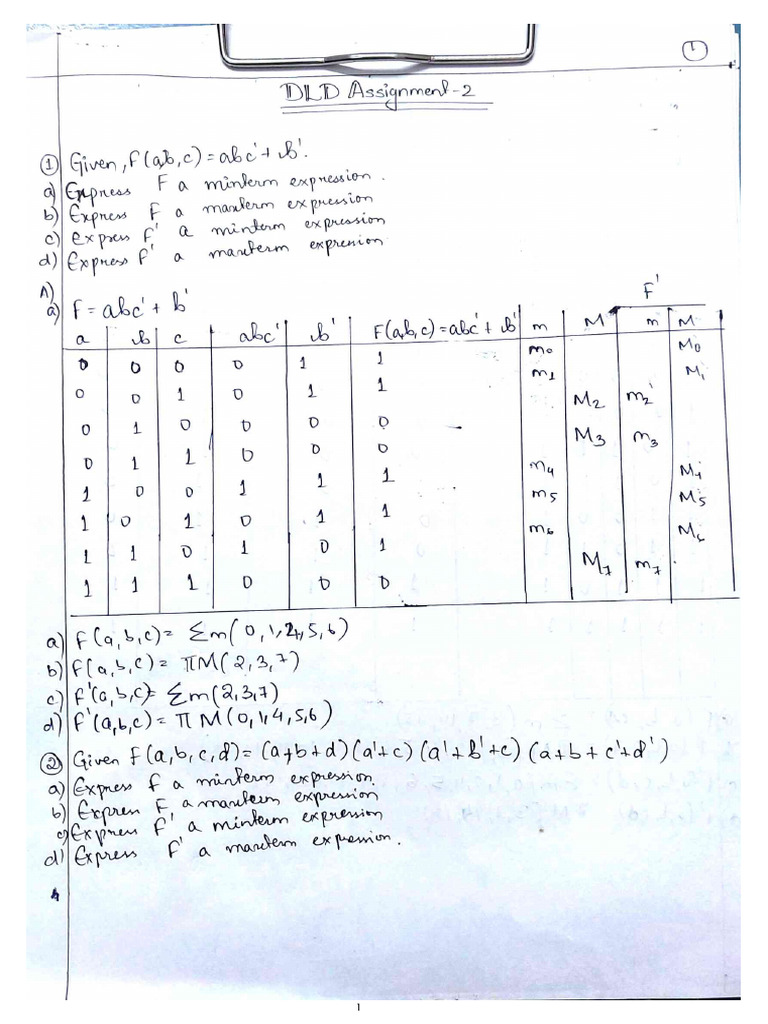 1
DLD Assignment-2
① Given, F(a,b,c) = abc' + b'.
a) Express F a minterm expression.
b) Express F a maxterm expression
c) express F' a minterm expression
d) Express F' a maxterm expression
A)
a) F = abc' + b'
F'
a b c abc' b' F(a,b,c) = abc' + b' m M m M
0 0 0 0 1 1 m0 M0
0 0 1 0 1 1 m1 M1
0 1 0 0 0 0 M2 m2'
0 1 1 0 0 0 M3 m3
1 0 0 1 1 1 m4 M4
1 0 1 0 1 1 m5 M5
1 1 0 1 0 1 m6 M6
1 1 1 0 0 0 M7 m7
a) F(a,b,c) = Σm(0,1,4,5,6)
b) F(a,b,c) = πM(2,3,7)
c) F'(a,b,c) = Σm(2,3,7)
d) F'(a,b,c) = πM(0,1,4,5,6)
② Given F(a,b,c,d) = (a+b+d)(a'+c)(a'+b'+c)(a+b+c'+d')
a) Express F a minterm expression.
b) Express F a maxterm expression
c) Express F' a minterm expression
d) Express F' a maxterm expression.
1